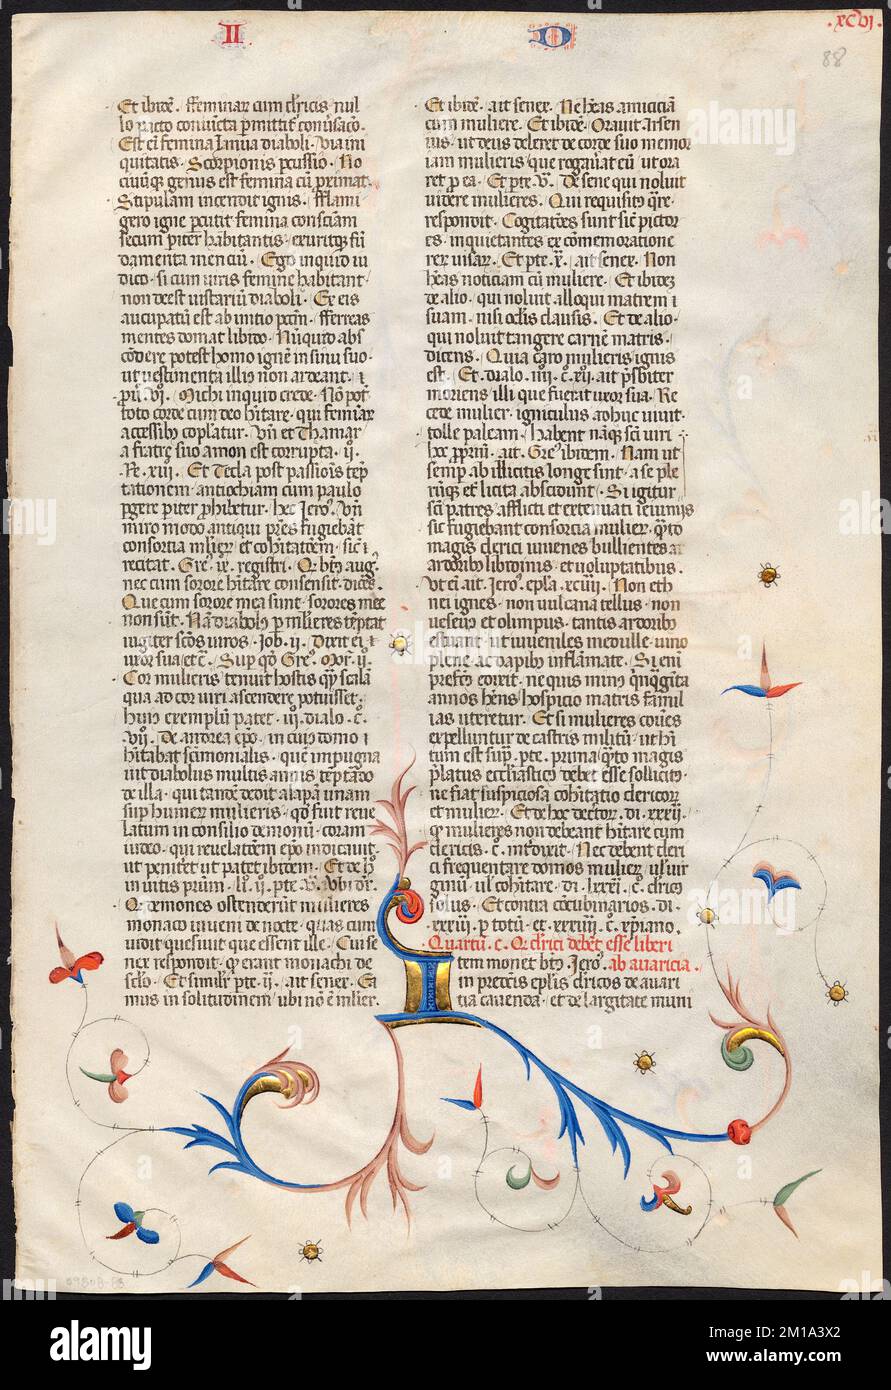 II D .xcvi.
88
Et ibidē. ffeminar cum clericis nul
lo pacto convicta permittit conversacō.
Est enī femina Ianua diaboli. via ini
quitatis. Scorpionis pcussio. No
civuƺ genus est femina cū proximat.
Stipulam incendit ignis. fflami
gero igne pcutit femina consciam
secum piter habitantis. exuritqƺ fū
damenta mentiū. Ego inquid iu
dico. si cum viris femine habitant.
non deest viscariū diaboli. Ex eis
aucupatū est ab initio pctm̄. fferreas
mentes domat libido. Nūquid abs
cōdere potest homo ignē in sinu suo.
ut vestimenta illius non ardeant. i
pū. vi. Michi inquid crede. Nō pot
toto corde cum deo hītare. qui feminar
accessibus coplatur. Vn̄ et Thamar
a fratre suo amon est corrupta. ii.
Re. xiii. Et Tecla post passiōis temp
tationem. antiochiam cum paulo
pgere piter phibetur. hec Jero. Vn̄
miro modo antiqui pres fugiebāt
consortia mulier et cohitatiōem. sic i
recitat. Gre. ix. registri. Q btus aug.
nec cum sorore hītare consensit. dicēs.
Que cum sorore mea sunt. sorores mee
non sūt. Nā diabolus p mulieres temptat
iugiter scōs viros. Job. ii. Dixit ei
uxor sua etc. Sup qo Gre. mor. ii.
Cor mulieris tenuit hostis quasi scalā
qua ad cor viri ascendere potuisset.
huius exemplū patet. iii. dialo. c.
vii. De andrea epo. in cuius domo
hītabat scimonialis. quē impugna
vit diabolus multis annis temptādo
de illa. qui tandē dedit alapā unam
sup humer mulieris. qd fuit reve
latum in consilio demonū. coram
iudeo. qui revelatiōem epo indicavit.
ut penitet ut patet ibidem. Et de hoc
in vitis patrum. li. ii. pte. v. ubi dr.
Q demones ostenderūt mulieres
monaco inveni de nocte. quas cum
vidit quesivit que essent ille. Cui se
nex respondit. q erant monachi de
sclo. Et similr pte. ii. ait senex. Ea
mus in solitudinem ubi nō ē mulier.
Et ibidē. ait senex. Ne heās amiciciā
cum muliere. Et ibidē. Oravit Arsen
ius. ut deus deleret de corde suo memor
iam mulieris que rogavat eū ut ora
ret p ea. Et pte. v. De sene qui noluit
videre mulieres. Qui requisitus qre.
respondit. Cogitatiōes sunt sicut pictor
es. inquietantes ex commemoratione
rerum visarum. Et pte. x. ait senex. Non
heās noticiam cū muliere. Et ibideƺ
de alio. qui noluit alloqui matrem
suam. nisi oclis clausis. Et de alio.
qui noluit tangere carnē matris.
dicens. Quia caro mulieris ignis
est. Et. dialo. iiii. c. xii. ait presbiter
moriens illi que fuerit uxor sua. Re
cede mulier. igniculus adhuc vivit.
tolle paleam. habent nāqƺ sci viri
hoc pprium. ait. Gre. ibidem. Nam ut
semp ab illicitis longe sint. a se ple
rūqƺ et licita abscidunt. Si igitur
sci patres afflicti et extenuati ieiuniis
sic fugiebant consortia mulier. qnto
magis clerici iuvenes bullientes
ardoribus libidinis. et voluptatibus.
Vt ei. ait. Jero. epla. xciiii. Non eth
nei ignes. non vulcana tellus. non
vesevus et olimpus. tantis ardoribus
estuant. ut iuveniles medulle. vino
plene. ac dapibus inflāmate. Si enī
prefecto
annos hens. hospicio matris famil
ias uteretur. Et si mulieres coīes
expelluntur de castris militū. ut hi
tum est sup. pte. prima. qnto magis
platus ecclesiasticus debet esse sollicitus.
ne fiat suspiciosa cohitatio clericor
et mulier. Et de hoc dector. di. xxxii.
q mulieres non debeant hītare cum
clericis. c. interdixit. Nec debent cleri
ci frequentare domos mulier. vl vir
ginū. vl cohītare. di. lxxxi. c. clericus
solus. Et contra concubinarios. di.
xxxiii. p totū. et. xxxiiii. c. xpiano.
Quartū. c. Q clici debet esse liberi
Item monet btus. Jero. ab avaricia.
in pretextis eplis. clicos de avari
tia cavenda. et de largitate muni
0980B-88
alamy
Image ID: 2M1A3X2
www.alamy.com